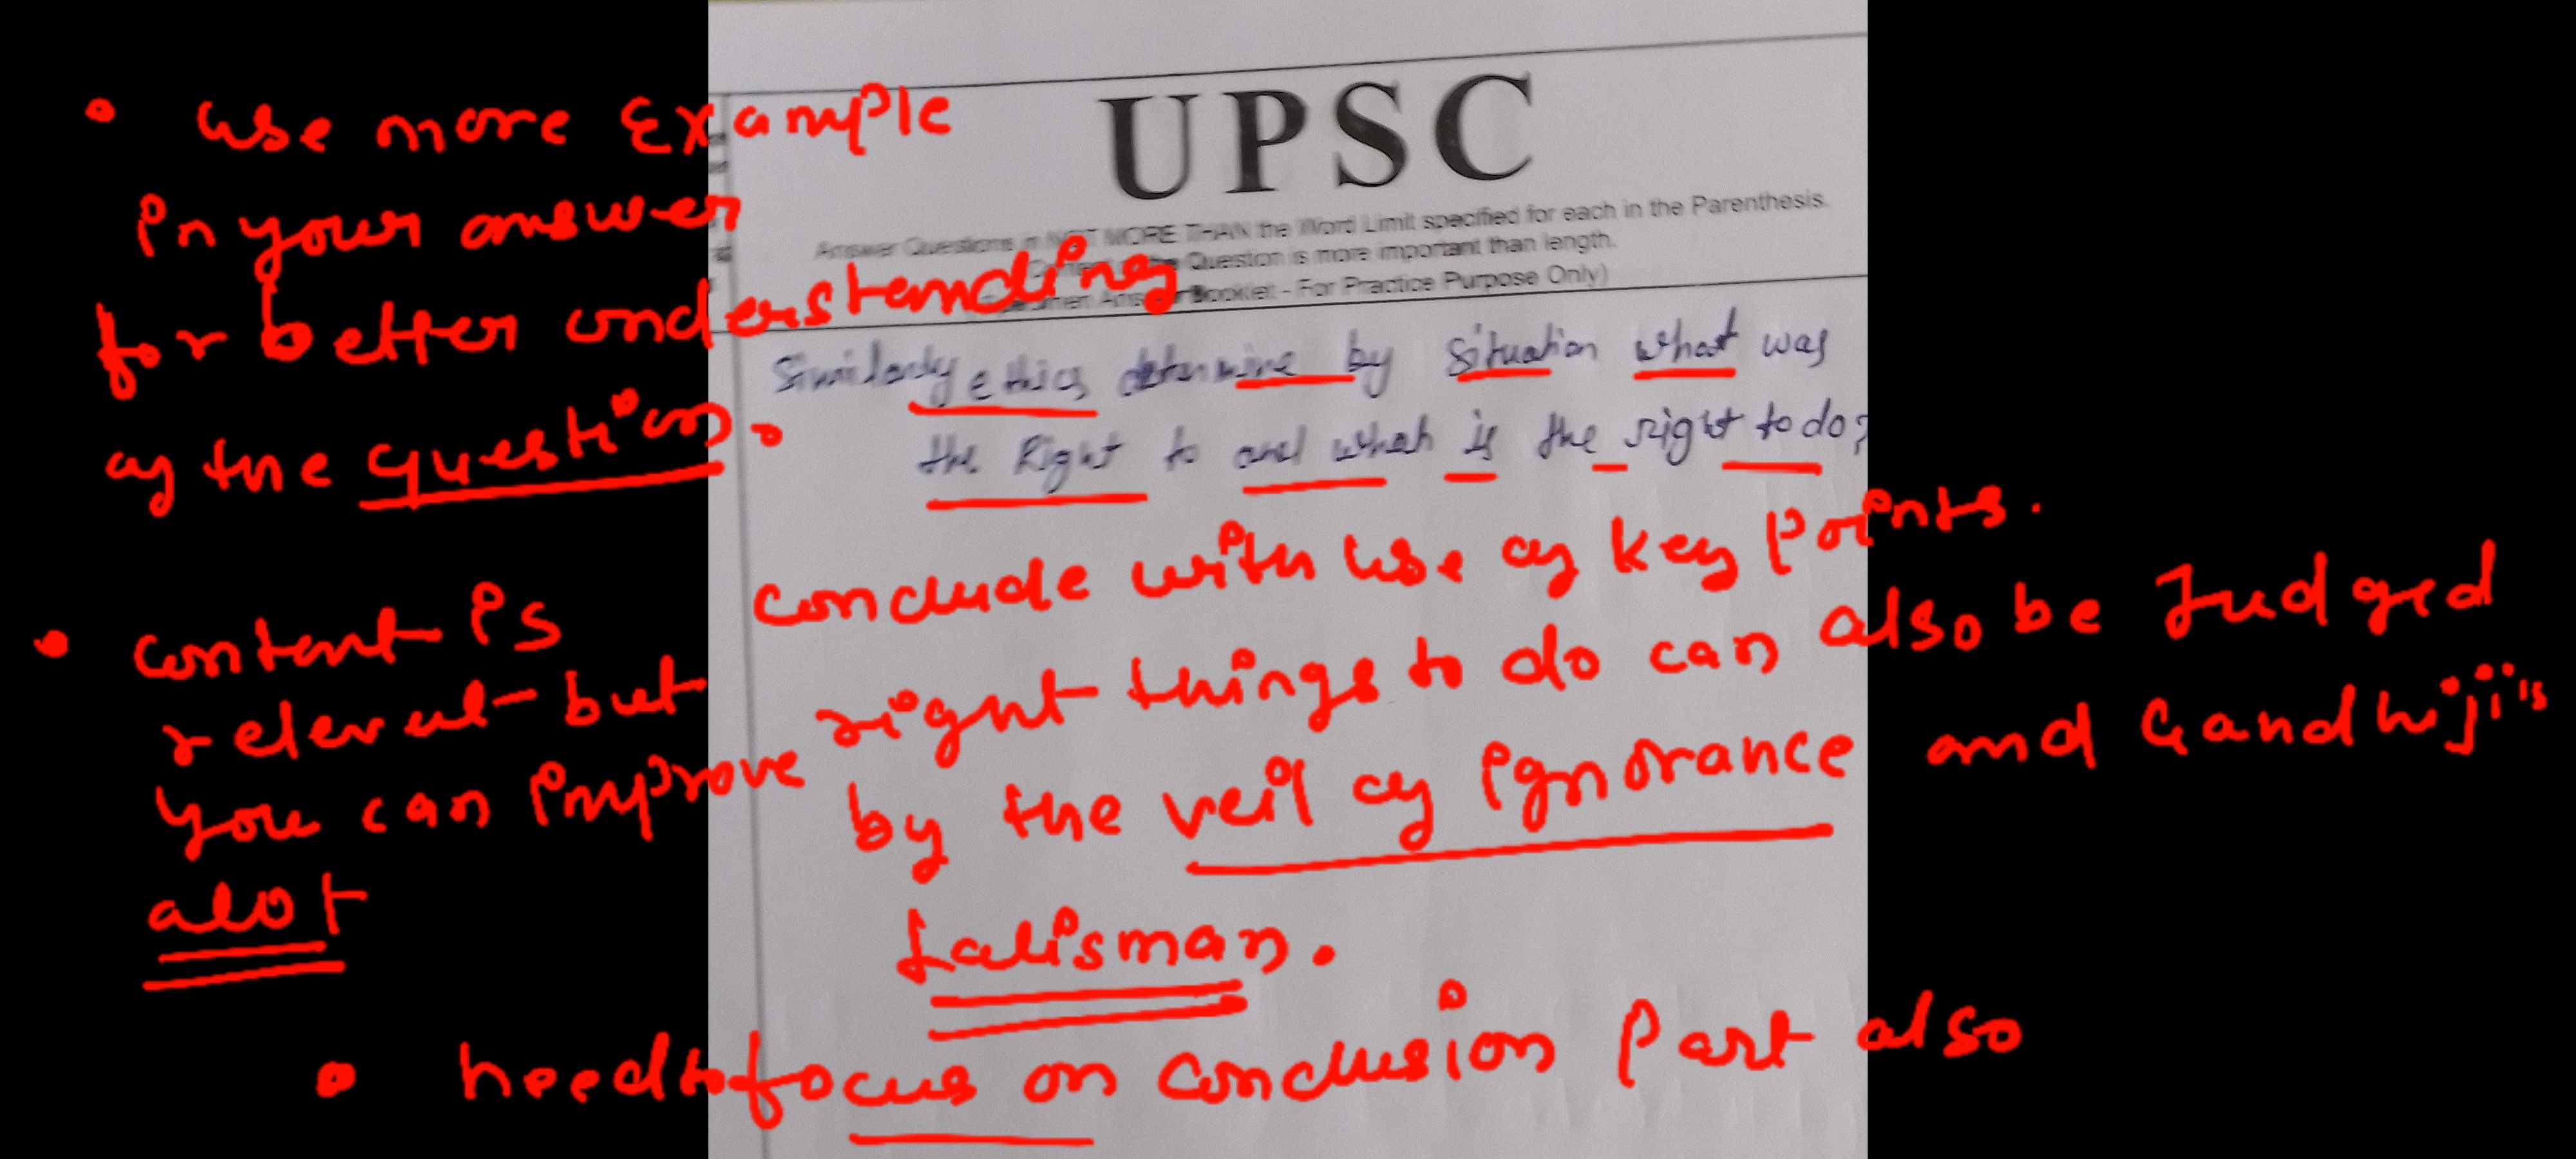 UPSC
Answer Questions in NOT MORE THAN the Word Limit specified for each in the Parenthesis.
the Question is more important than length.
Booklet - For Practice Purpose Only)
Similarly ethics determine by situation what was
the Right to and what is the right to do?
• use more Example
in your answer
for better understanding
of the question.
• content is
relevant but
you can improve
alot
conclude with use of key points.
right things to do can also be Judged
by the veil of ignorance and Gandhiji's
talisman.
• need to focus on conclusion part also